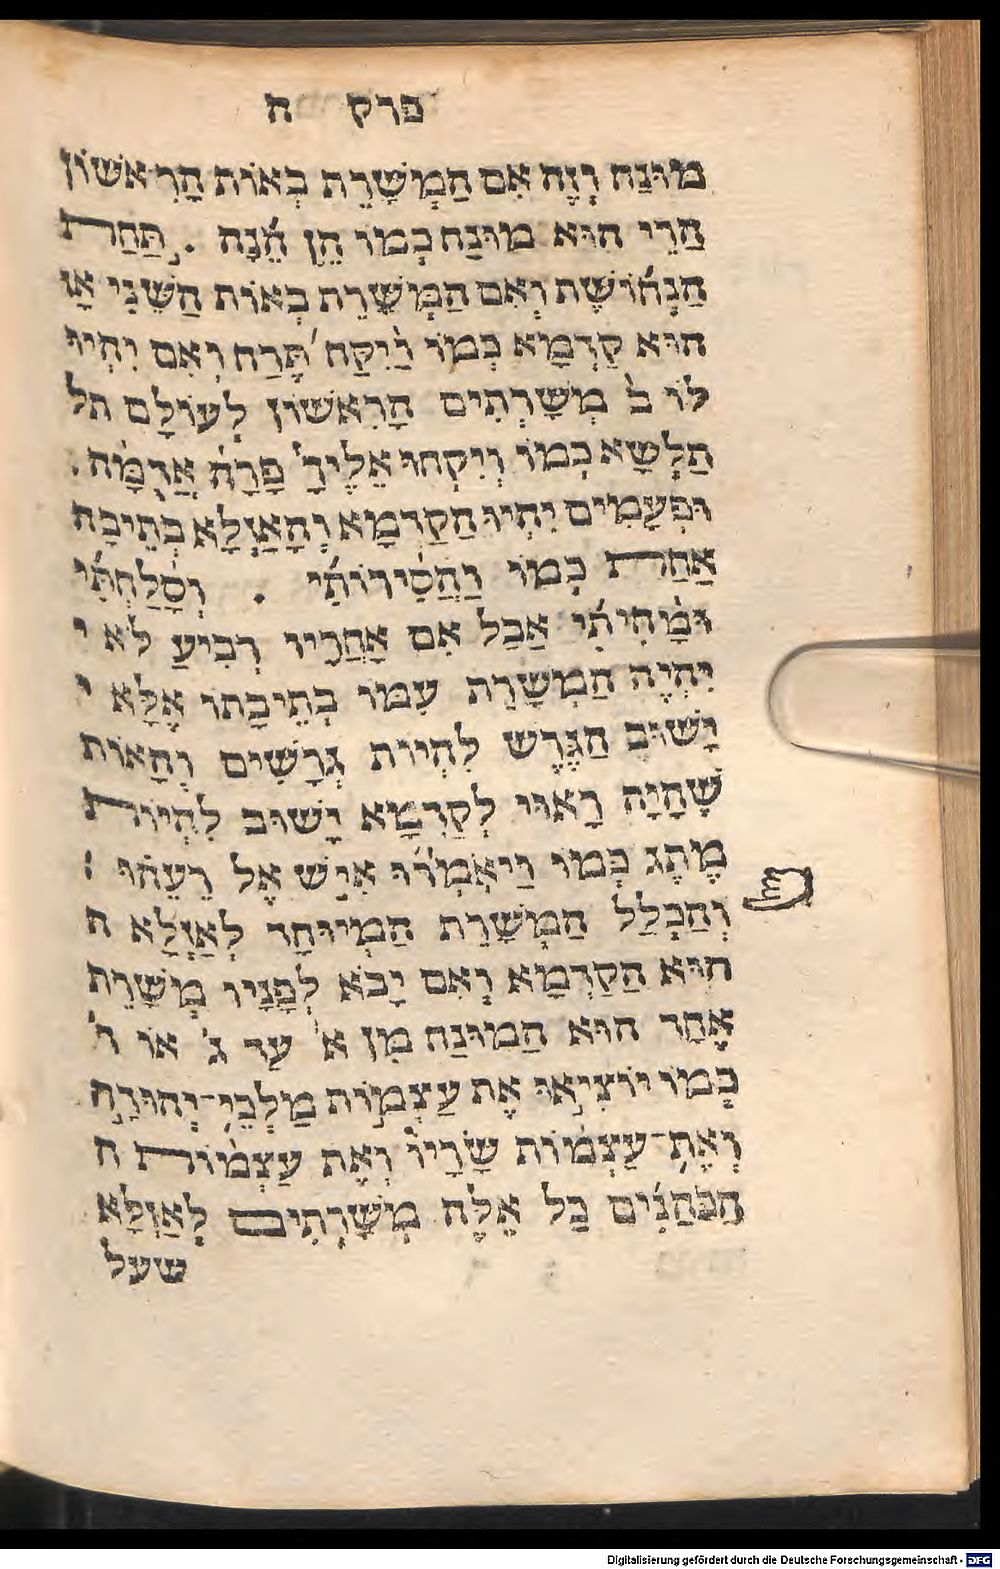 פרק ח
מוּנַח וְזֶה אִם הַמְשָׁרֵת בְּאוֹת הָרִאשׁוֹן
הֲרֵי הוּא מוּנַח כְּמוֹ הֵן הֵ֜נָּה . תַּחַת
הַנְּחֹ֜ושֶׁת וְאִם הַמְּשָׁרֵת בְּאוֹת הַשֵּׁנִי אָז
הוּא קַדְמָא כְּמוֹ וַ֨יִּקַּח תֶּ֜רַח וְאִם יִהְיוּ
לוֹ ב֗ מְשָׁרְתִים הָרִאשׁוֹן לְעוֹלָם תל
תַּלְשָׁא כְּמוֹ וְיִקְחוּ אֵלֶיךָ֩ פָרָ֨ה אֲדֻמָּ֜ה .
וּפְעָמִים יִהְיוּ הַקַּדְמָא וְהָאַזְלָא בְּתֵיבָה
אַחַת כְּמוֹ וַהֲסִ֨ירוֹתִ֜י . וְסָ֨לַחְתִּ֜י
וּמָ֨חִיתִ֜י אֲבָל אִם אַחֲרָיו רְבִיעַ לֹא י
יִהְיֶה הַמְשָׁרֵת עִמּוֹ בְּתֵיבָתוֹ אֶלָּא י
יָשׁוּב הַגֶּרֶשׁ לִהְיוֹת גְּרָשַׁיִם וְהָאוֹת
שֶׁהָיָה רָאוּי לְקַדְמָא יָשׁוּב לִהְיוֹת
מֶתֶג כְּמוֹ וַיֹּאמְר֞וּ אִישׁ אֶל רֵעֵ֗הוּ
וְהַכְּלָל הַמְשָׁרֵת הַמְיוּחָד לְאַזְלָא ה
הוּא הַקַּדְמָא וְאִם יָבֹא לְפָנָיו מְשָׁרֵת
אַחֵר הוּא הַמּוּנַח מִן א֗ עַד ג֗ אוֹ ד֗
כְּמוֹ יוֹצִ֣יאוּ אֶת עַצְמ֣וֹת מַלְכֵֽי־יְהוּדָ֣ה
וְאֶת־עַצְמ֣וֹת שָׂרָיו֩ וְאֶת עַצְמ֨וֹת ה
הַכֹּהֲנִ֜ים כָּל אֵלֶּה מְשָׁרְתִים לְאַזְלָא
שעל
Digitalisierung gefördert durch die Deutsche Forschungsgemeinschaft - DFG